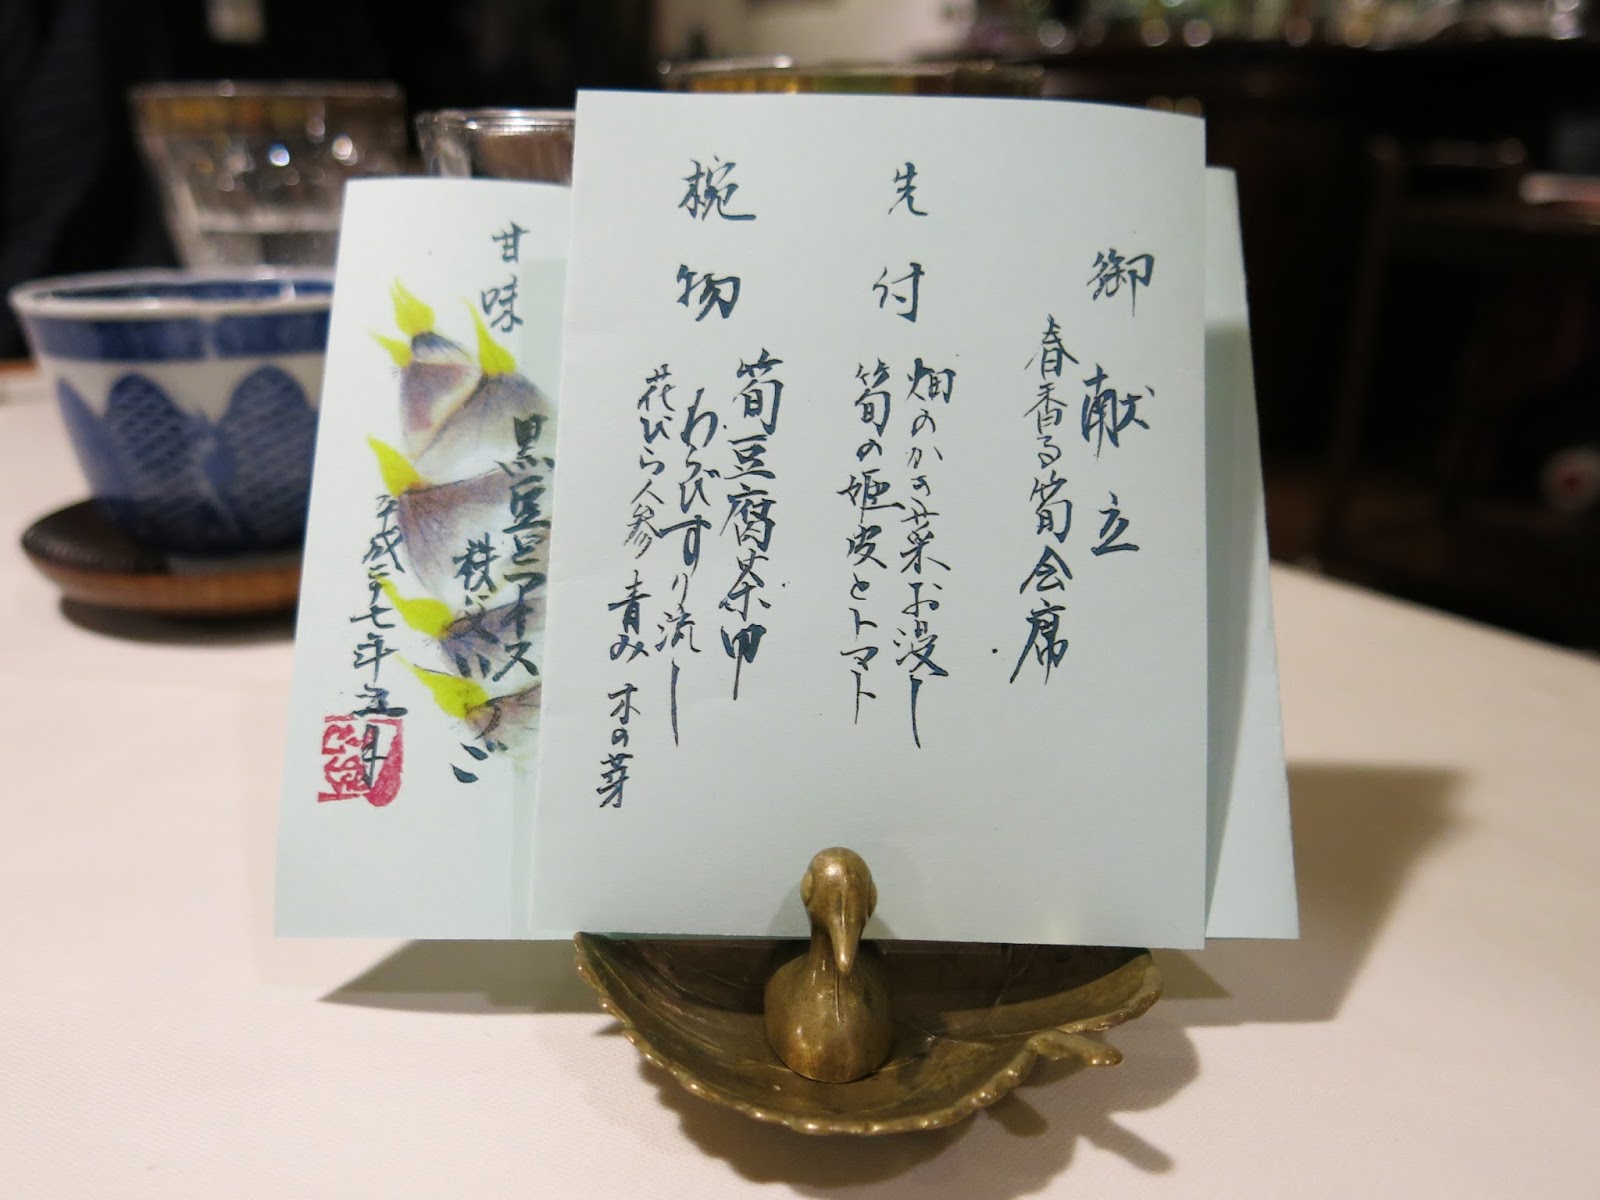 御献立
春香る筍会席
先付
畑のかき菜お浸し
筍の姫皮とトマト
椀物
筍豆腐茶巾
わらびすり流し
花びら人参 青み 木の芽
甘味
黒豆とアイス
秩父いちご
平成二十七年五月